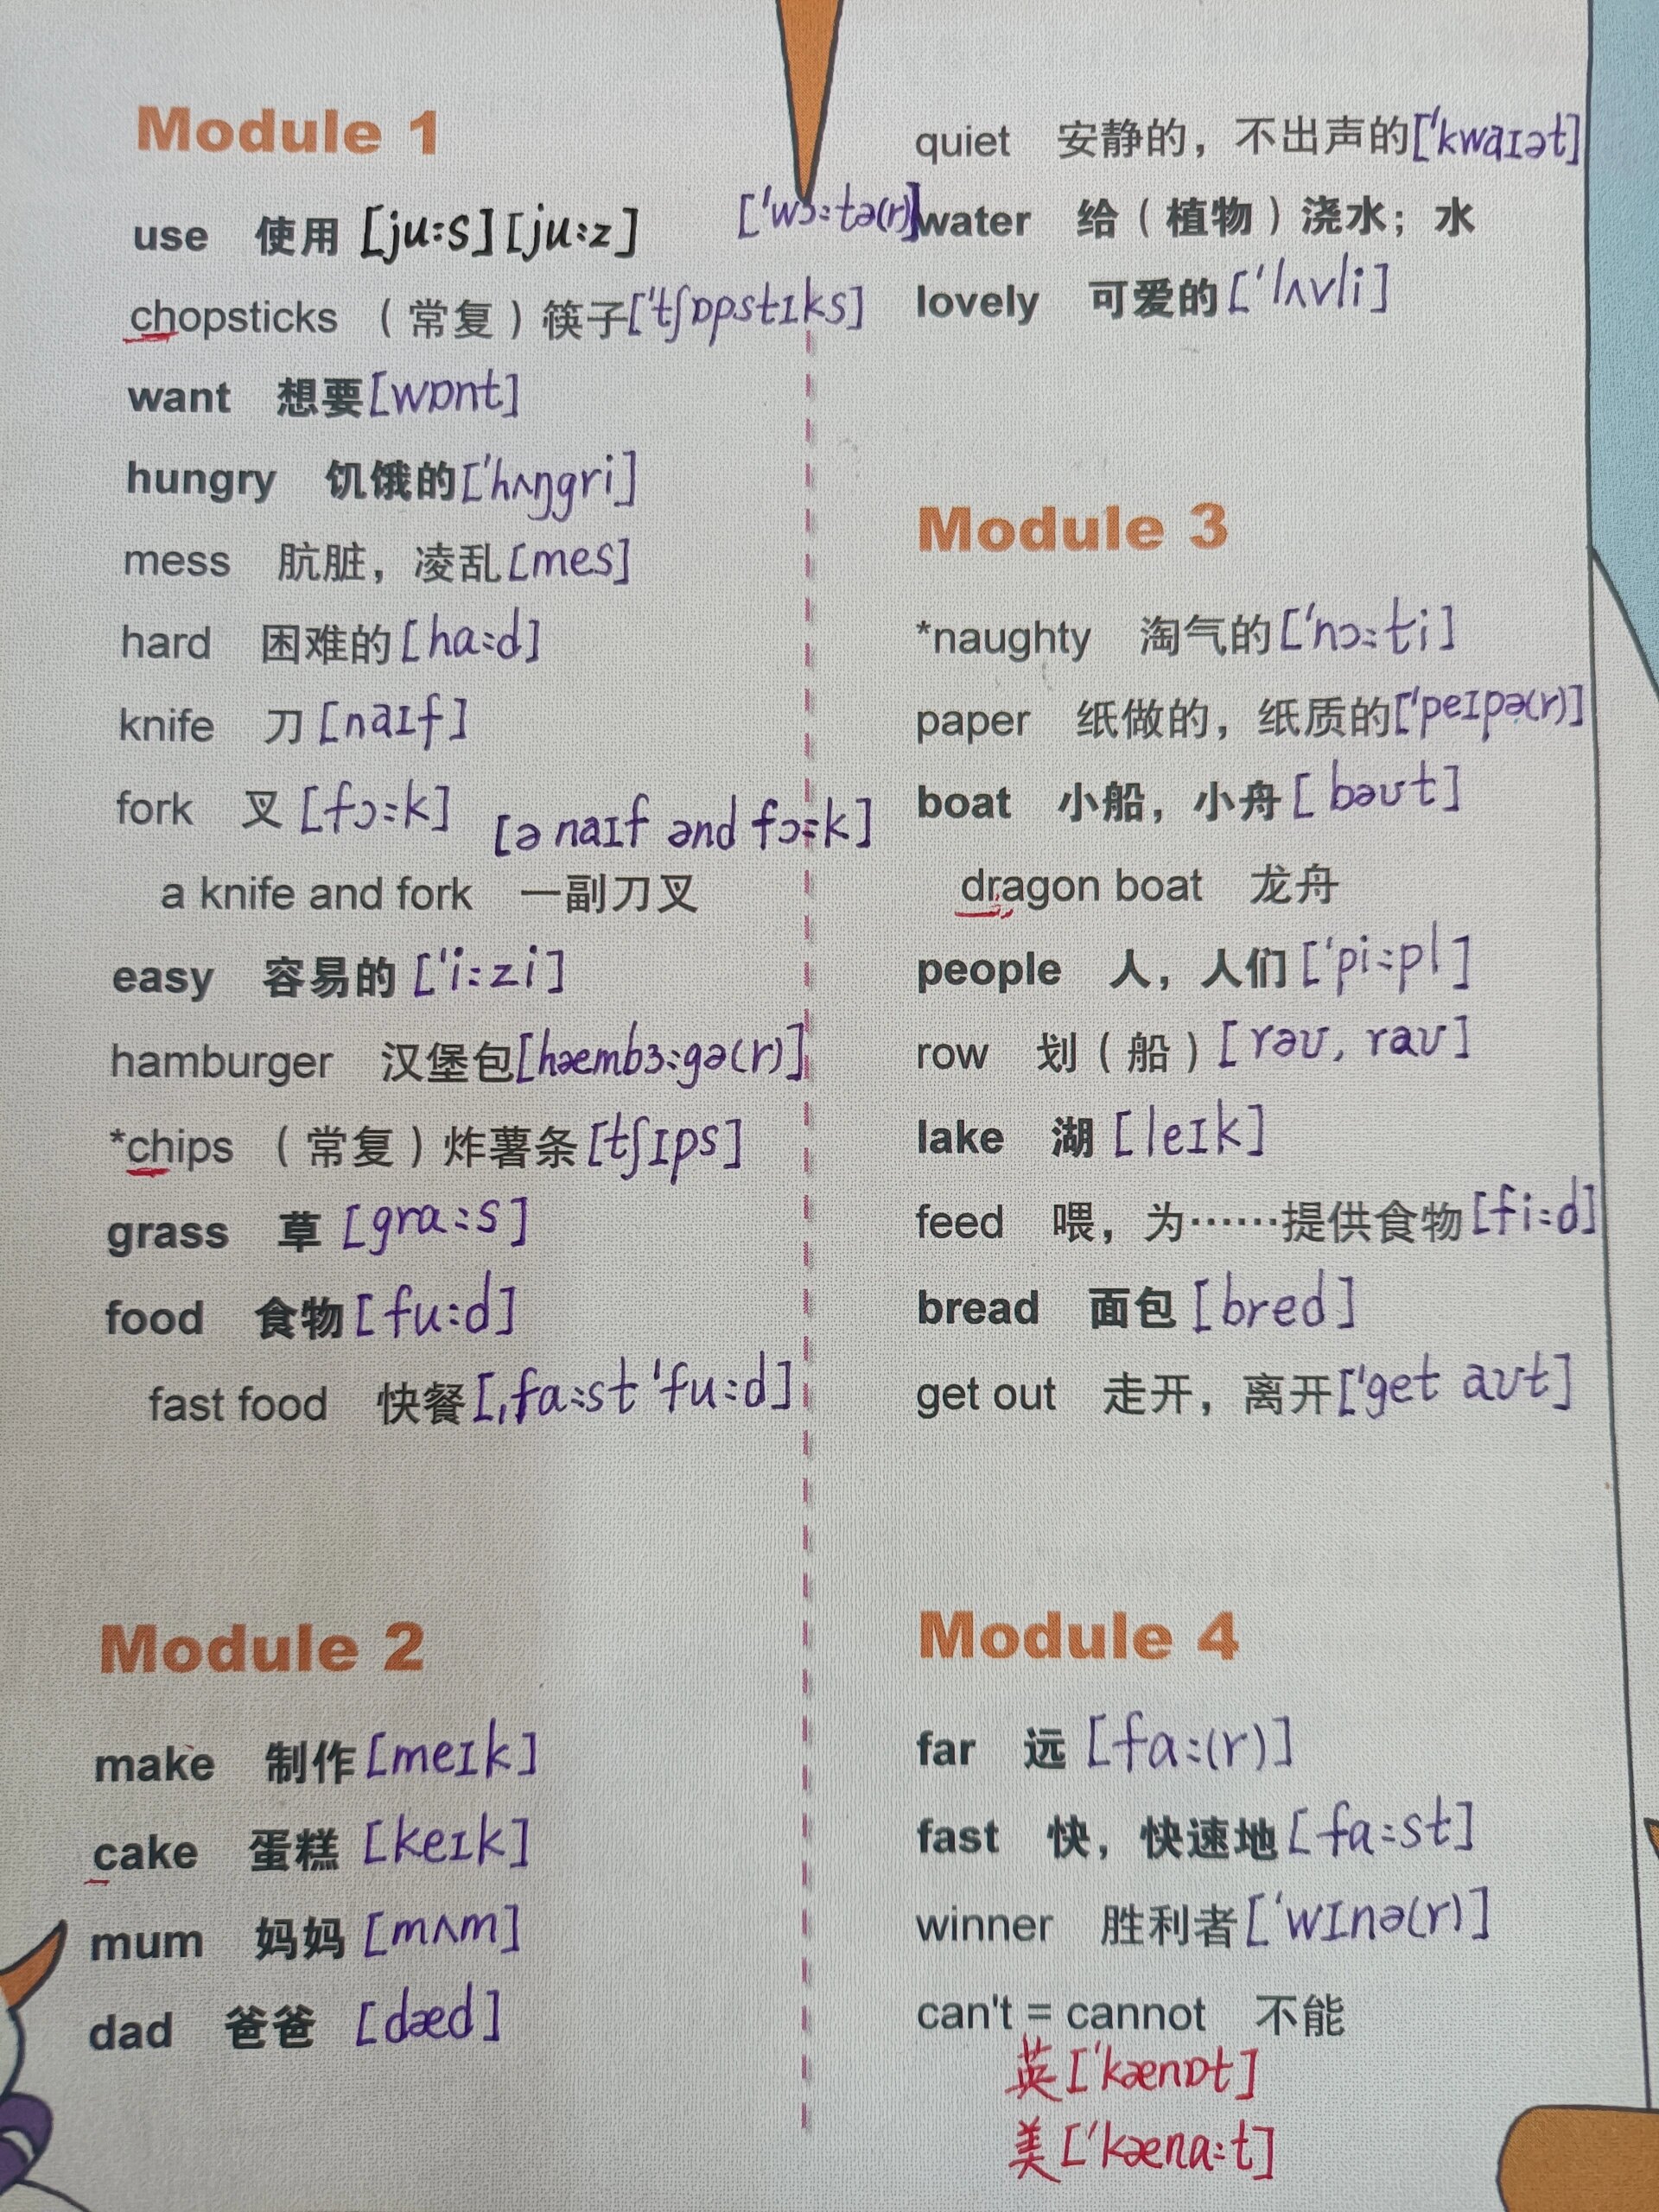 Module 1
use 使用 [ju:s][ju:z]
chopsticks （常复）筷子['tʃɒpstɪks]
want 想要[wɒnt]
hungry 饥饿的['hʌŋgri]
mess 肮脏，凌乱[mes]
hard 困难的[ha:d]
knife 刀[naɪf]
fork 叉[fɔ:k]
[ə naɪf ənd fɔ:k]
a knife and fork 一副刀叉
easy 容易的['i:zi]
hamburger 汉堡包[hæmbɜ:gə(r)]
*chips （常复）炸薯条[tʃɪps]
grass 草[gra:s]
food 食物[fu:d]
fast food 快餐[ˌfa:st 'fu:d]
Module 2
make 制作[meɪk]
cake 蛋糕[keɪk]
mum 妈妈[mʌm]
dad 爸爸[dæd]
quiet 安静的，不出声的['kwaɪət]
['wɔ:tə(r)]water 给（植物）浇水；水
lovely 可爱的['lʌvli]
Module 3
*naughty 淘气的['nɔ:ti]
paper 纸做的，纸质的['peɪpə(r)]
boat 小船，小舟[bəʊt]
dragon boat 龙舟
people 人，人们['pi:pl]
row 划（船）[rəʊ, raʊ]
lake 湖[leɪk]
feed 喂，为……提供食物[fi:d]
bread 面包[bred]
get out 走开，离开['get aʊt]
Module 4
far 远[fa:(r)]
fast 快，快速地[fa:st]
winner 胜利者['wɪnə(r)]
can't = cannot 不能
英['kænɒt]
美['kæna:t]